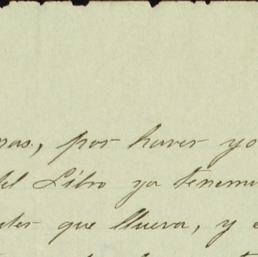 nas, por haver yo
del Libro ya tenemo
ntes que llueva, y e